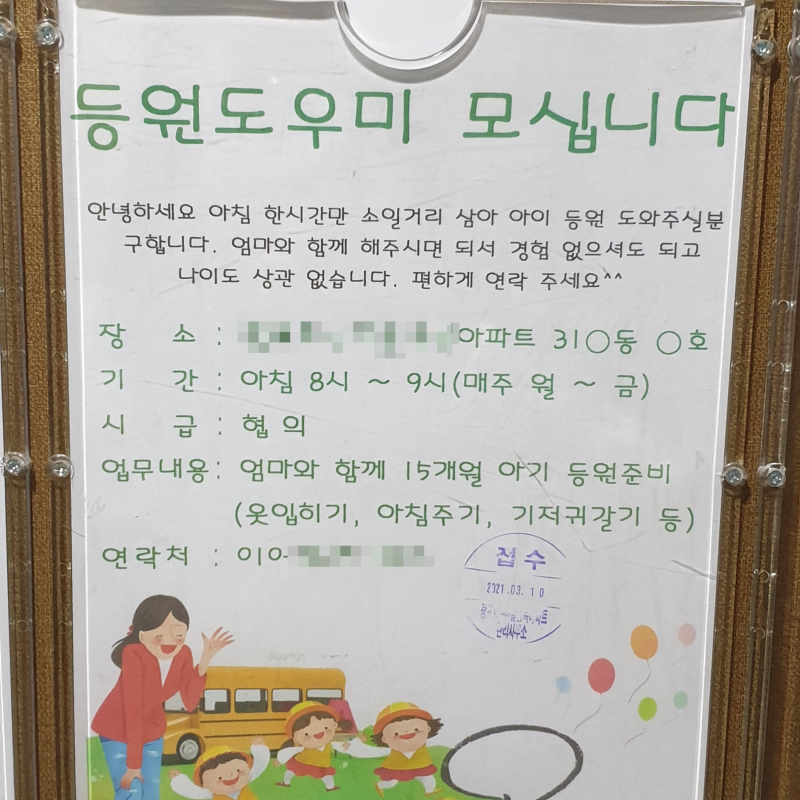 등원도우미 모십니다
안녕하세요 아침 한시간만 소일거리 삼아 아이 등원 도와주실분
구합니다. 엄마와 함께 해주시면 되서 경험 없으셔도 되고
나이도 상관 없습니다. 편하게 연락 주세요^^
장 소 : 아파트 31○동 ○호
기 간 : 아침 8시 ~ 9시(매주 월 ~ 금)
시 급 : 협의
업무내용: 엄마와 함께 15개월 아기 등원준비
(옷입히기, 아침주기, 기저귀갈기 등)
연락처 : 010-
접수
2021.03.10
관리사무소